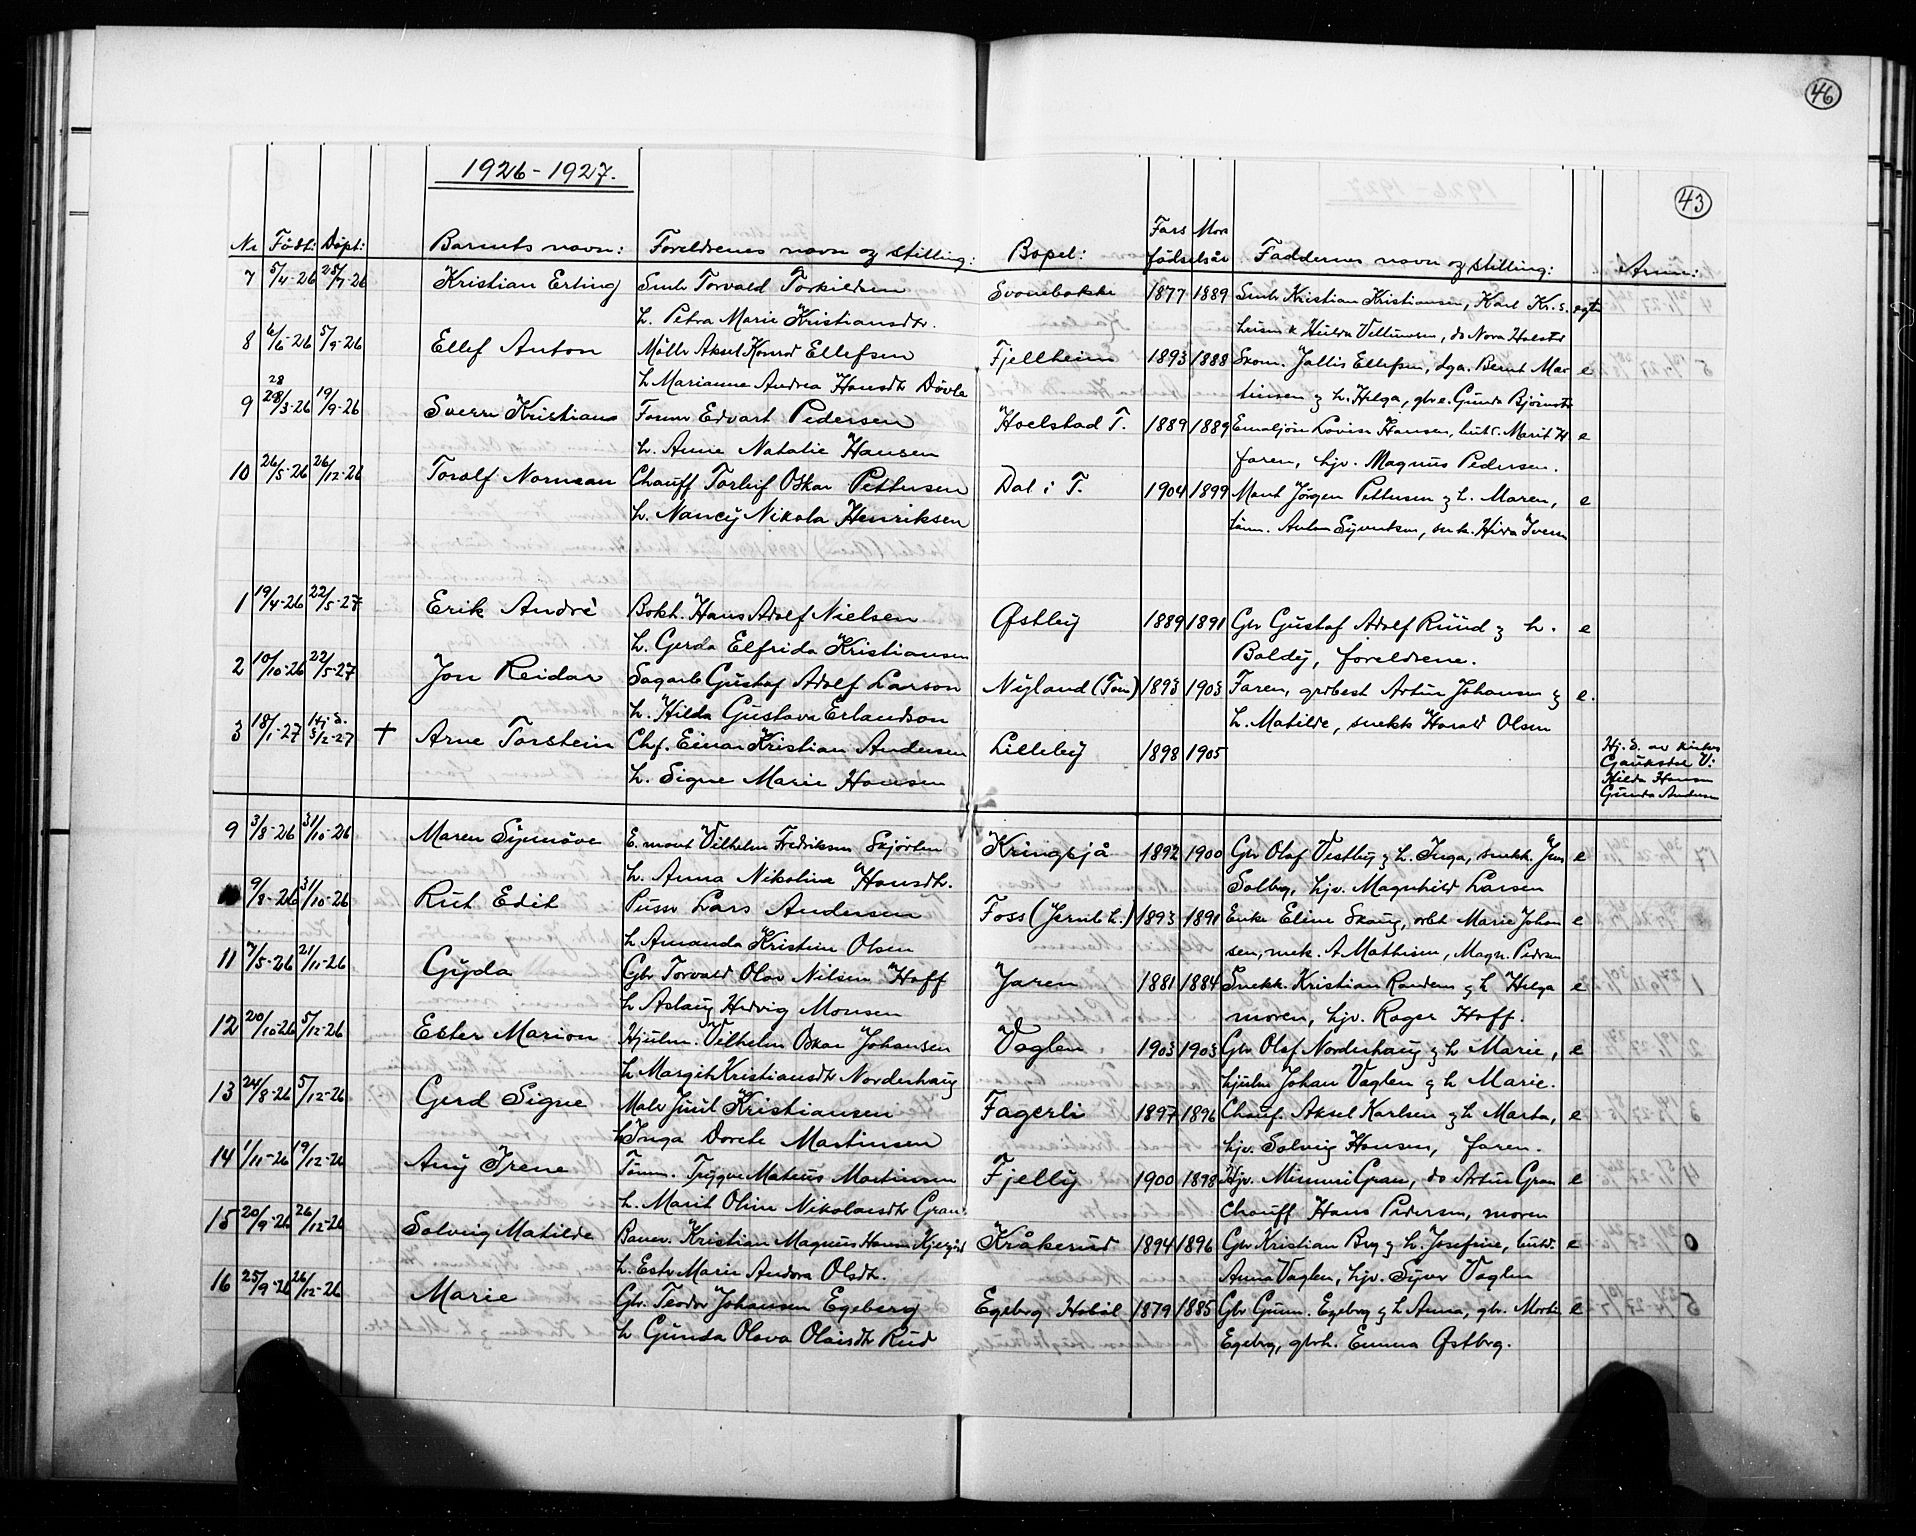 46
1926-1927.
43
Nr Født: Døpt: Barnets navn: Foreldrenes navn og stilling: Bopel: Fars Mors fødselsår Faddernes navn og stilling: Anm:
7 5/4-26 25/7-26 Kristian Erling Smb Torvald Torkildsen Svenebakke 1877 1889 Smb Kristian Kristiansen, Karl Kr.s. egte
h. Petra Marie Kristiansdtr. Hulda do Nora Holste
8 6/6-26 5/9-26 Ellef Anton Möller Aksel Konrad Ellefsen Fjellheim 1893 1888 Skom. Jallis Ellefsen, dga. Bernt Mar e
h Marianne Andrea Hansdtr Dövle tinsen g h. Helga, gbr e. Gunda Bjørnst
28
9 28/3-26 19/9-26 Sverre Kristian Former Edvart Pedersen Hoelstad T. 1889 1889 Emaljør Lovise Hansen, Marit H e
h. Anne Natalie Hansen faren, hjv. Magnus Pedersen.
10 26/5-26 26/12-26 Toralf Norman Chauff Torleif Oskar Pettersen Dal i T. 1904 1899 Mont Jörgen Pettersen g h. Maren, e
h. Nancy Nikola Henriksen tönn. Anton Syvertsen,
1 19/4-26 22/5-27 Erik André Bokh. Hans Adolf Nielsen Østby 1889 1891 Gbr Gustaf Adolf Rüüd g h. e
h. Gerda Elfrida Kristiansen Baldy, foreldrene.
2 10/10-26 22/5-27 Jon Reidar Sagarb Gustaf Adolf Larson Nyland (Tom) 1893 1903 Faren, grbest Artur Johansen g e.
h. Hilda Gustava Erlandson h. Matilde, snekk Harald Olsen
3 18/1-27 Hj.d. 3/2-27 † Arne Torstein Chf. Einar Kristian Andersen Lilleby 1898 1905 Hj.d. av
h. Signe Marie Hansen Gaukstad V:
Hilda Hansen
Gunda Andersen
9 3/8-26 31/10-26 Maren Synnöve E. mont Vilhelm Fredriksen Skjörten Kringsjå 1892 1900 Gbr Olaf Vestby g h. Inga, snekk. Jens e
h. Anna Nikoline Hansdtr. Solbrg, hjv. Magnhild Larsen
9/8-26 31/10-26 Rut Edit Pusser Lars Andersen Foss (Jernb h.) 1893 1891 Enke Eline Skaug, arbt Marie Johan e
h Amanda Kristine Olsen sen, snek. A Mathisen, Magn. Pedrsen
11 7/5-26 21/11-26 Gyda Gbr Torvald Olav Nilsen Hoff Jaren 1881 1884 Snekk. Kristian Randem g h Helga e
h Aslaug Hedvig Monsen moren, hjv. Roger Hoff.
12 20/10-26 5/12-26 Ester Marion Hjulm. Vilhelm Oskar Johansen Vaglen 1903 1903 Gbr Olaf Norderhaug g h Marie, e
h Margit Kristiansdtr Norderhaug hjulm Johan Vaglen g h Marie.
13 24/8-26 5/12-26 Gerd Signe Maler Juul Kristiansen Fagerli 1897 1896 Chauf. Aksel Karlsen g h Marta, e
h Inga Dorete Martinsen hjv. Solveig Hansen, faren.
14 1/11-26 19/12-26 Any Irene Tömm. Trygve Mateus Martinsen Fjelly 1900 1898 Hjv. Minnuri Gran, do Artur Gran e
h. Marit Oline Nikolaisdtr Gran. Chauff Hans Pedersen, moren
15 20/9-26 26/12-26 Solveig Matilde Baner. Kristian Magnus Hansen Kjergård Kråkerud 1894 1896 Gbr Kristian Brg g h. Josefine, butd. e 0
h. Ester Marie Andora Olsdtr. Anna Vaglen, hjv. Syver Vaglen
16 25/9-26 26/12-26 Marie Gbr. Teodor Johansen Egeberg Egebrg Hobøl 1879 1885 Gbr Gunn. Egebrg g h Anna, gbr. Martin e
h Gunda Olava Olaisdtr Rud Egebrg, gbrh. Emma Østbrg.